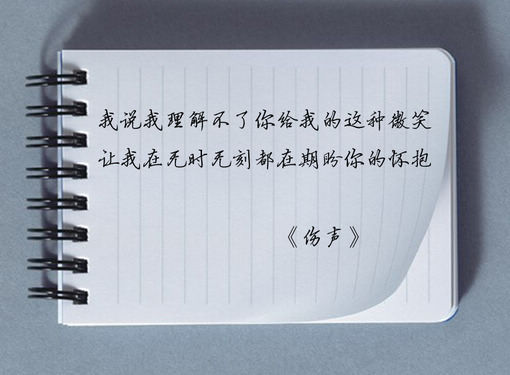 我说我理解不了你给我的这种微笑
让我在无时无刻都在期盼你的怀抱
《伤声》